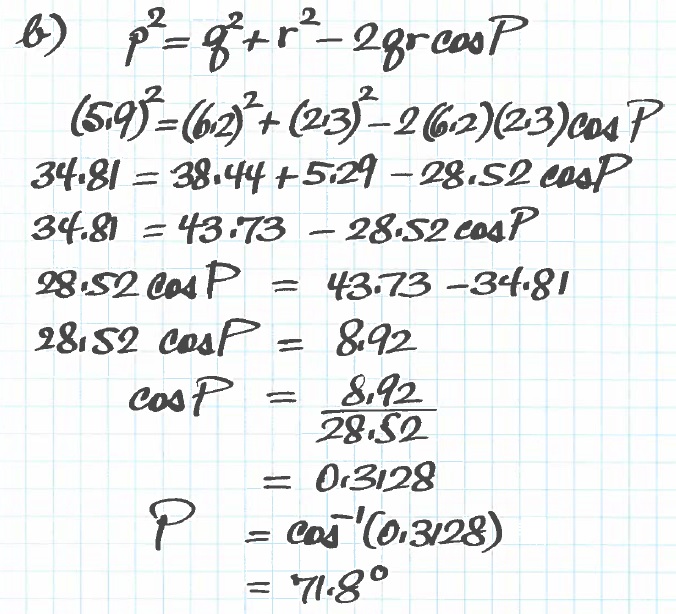 b) p² = q² + r² - 2qr cos P
(5.9)² = (6.2)² + (2.3)² - 2(6.2)(2.3) cos P
34.81 = 38.44 + 5.29 - 28.52 cos P
34.81 = 43.73 - 28.52 cos P
28.52 cos P = 43.73 - 34.81
28.52 cos P = 8.92
cos P = 8.92
28.52
= 0.3128
P = cos⁻¹(0.3128)
= 71.8°